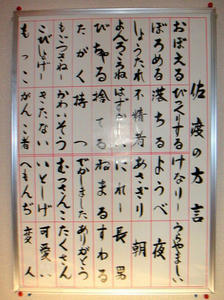 佐渡の方言
おぼえる びっくりする けなりー うらやましい
ぼろめる 落ちる ようべ 夜
しょうたれ 不精者 あさぎり 朝
はずかしい 長男
びちゃる 捨てる ねまる すわる
たがく 持つ でかしました ありがとう
かわいそう むっさんこ たくさん
きたない いとしげ 可愛い
もっこ がんこ者 へもんぢ 変人